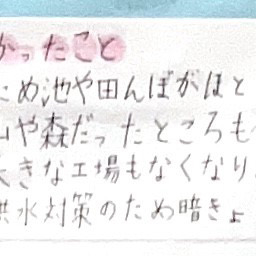 かったこと
ため池や田んぼがほと
山や森だったところも
大きな工場もなくなり
洪水対策のため暗きょ